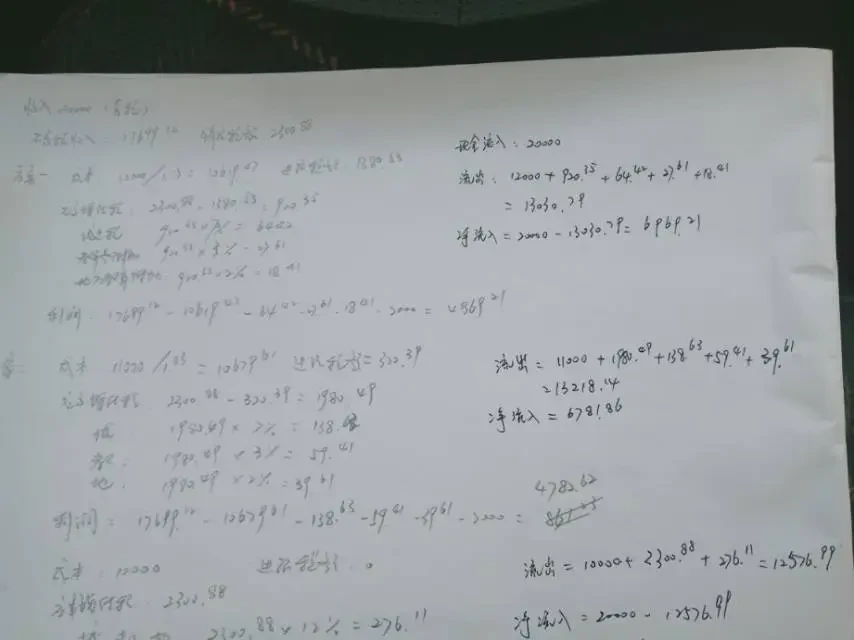 收入 20000 (含税)
不含税收入: 17699.12 销项税额 2300.88
方案一 成本: 12000/1.13 = 10619.47 进项税额: 1380.53
应交增值税: 2300.88 - 1380.53 = 920.35
城建税 920.35 × 7% = 64.42
920.35 × 3% = 27.61
920.35 × 2% = 18.41
利润: 17699.12 - 10619.47 - 64.42 - 27.61 - 18.41 - 2000 = 4969.21
现金流入: 20000
流出: 12000 + 920.35 + 64.42 + 27.61 + 18.41
= 13030.79
净流入 = 20000 - 13030.79 = 6969.21
成本 11000/1.03 = 10679.61 进项税额 = 320.39
应交增值税 2300.88 - 320.39 = 1980.49
城: 1980.49 × 7% = 138.63
教: 1980.49 × 3% = 59.41
地: 1980.49 × 2% = 39.61
利润 = 17699.12 - 10679.61 - 138.63 - 59.41 - 39.61 - 2000 = 4782.62
流出 = 11000 + 1980.49 + 138.63 + 59.41 + 39.61
= 13218.14
净流入 = 6781.86
成本: 10000 进项税额: 0
应交增值税: 2300.88
2300.88 × 12% = 276.11
流出 = 10000 + 2300.88 + 276.11 = 12576.99
净流入 = 20000 - 12576.99